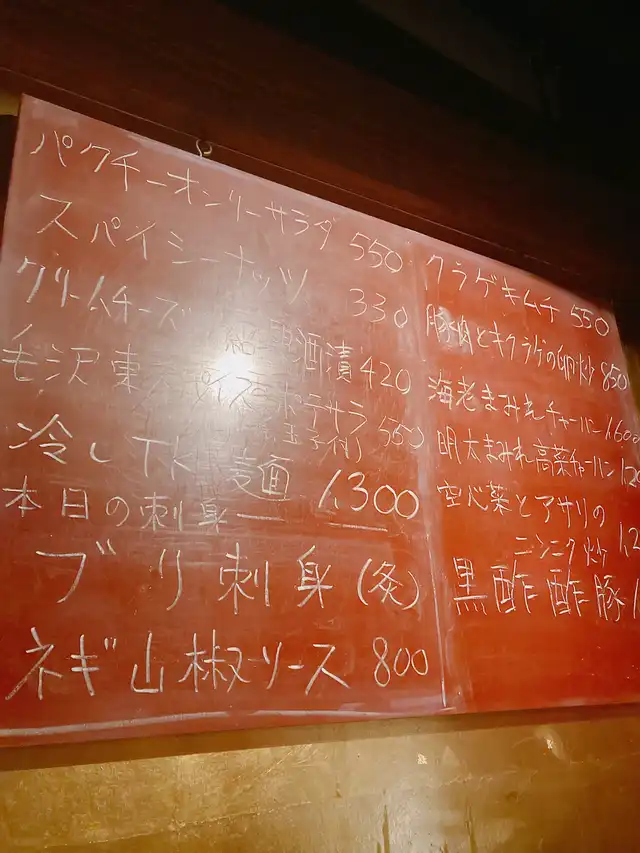 パクチーオンリーサラダ 550
スパイシーナッツ 330
クリームチーズ 紹興酒漬 420
毛沢東スパイスポテサラ 550
冷しTKM麺 1,300
本日の刺身
ブリ刺身(炙)
ネギ山椒ソース 800
クラゲキムチ 550
豚肉とキクラゲの卵炒 850
海老まみれチャーハン 1,600
明太まみれ高菜チャーハン
空心菜とアサリの
ニンニク炒
黒酢酢豚